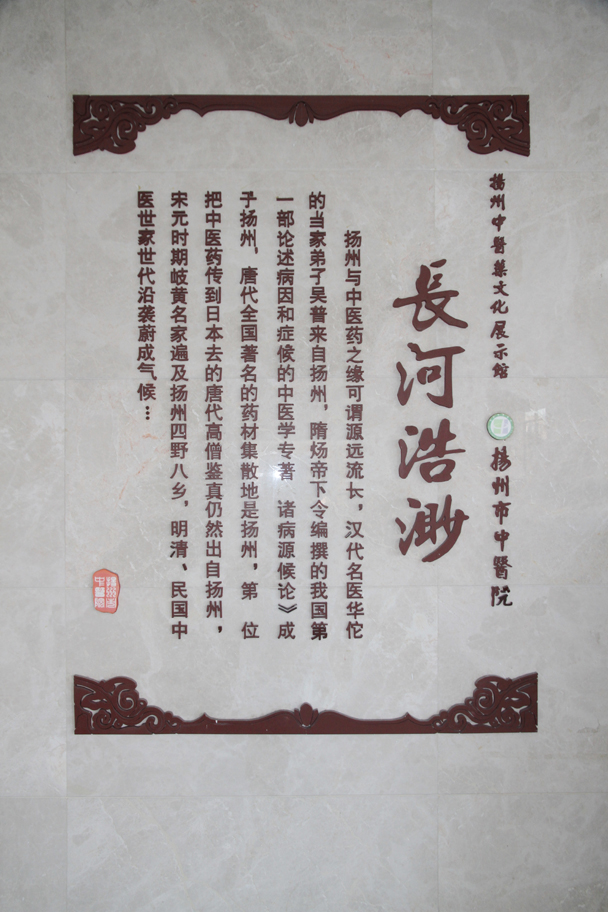 揚州中醫藥文化展示館
揚州市中醫院
長河浩渺
扬州与中医药之缘可谓源远流长，汉代名医华佗
的当家弟子吴普来自扬州，隋炀帝下令编撰的我国第
一部论述病因和症候的中医学专著 诸病源候论》成
于扬州，唐代全国著名的药材集散地是扬州，第 位
把中医药传到日本去的唐代高僧鉴真仍然出自扬州，
宋元时期岐黄名家遍及扬州四野八乡，明清、民国中
医世家世代沿袭蔚成气候…